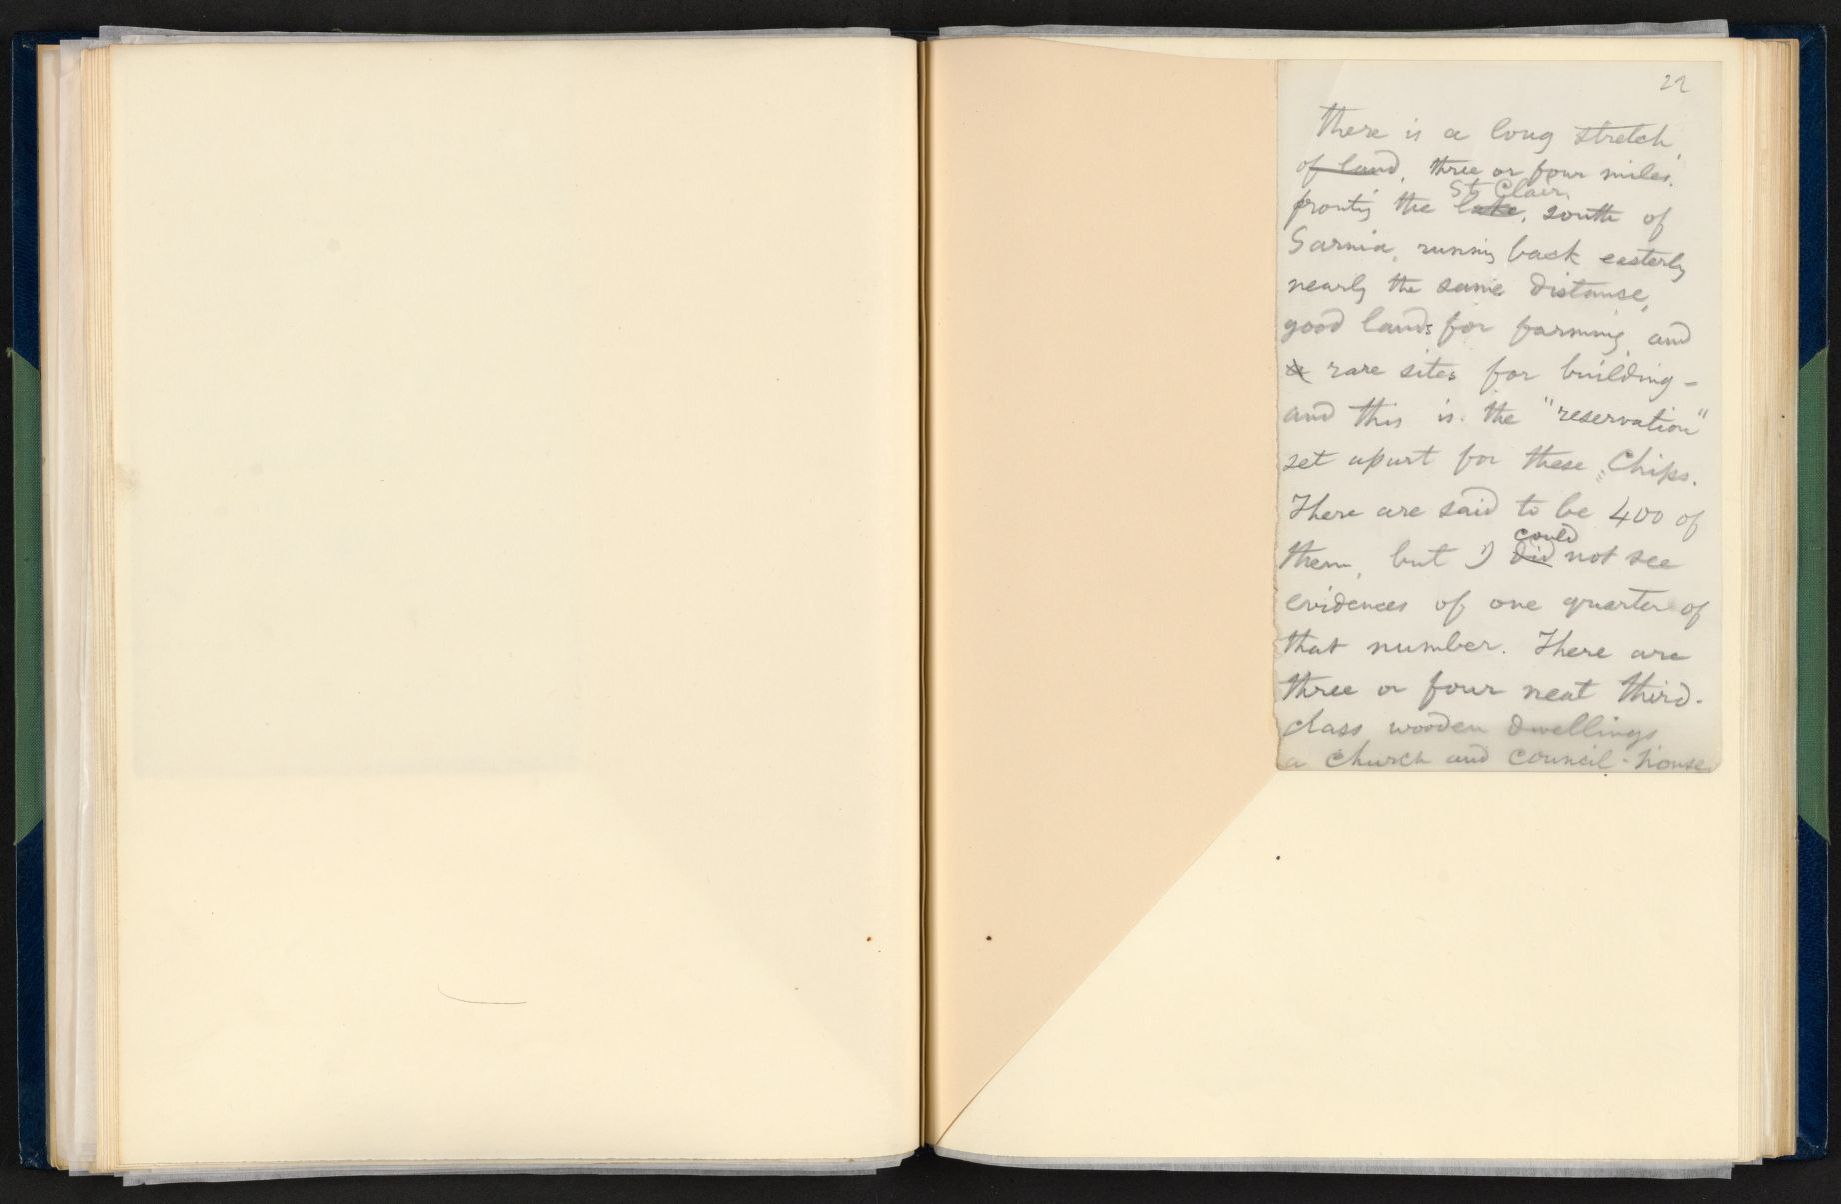 22
there is a long stretch,
of land, three or four miles,
St. Clair,
fronting the lake, south of
Sarnia, running back easterly
nearly the same distance,
good lands for farming, and
rare sites for building –
and this is the "reservation"
set apart for these "Chips.
There are said to be 400 of
could
them, but I did not see
evidences of one quarter of
that number. There are
three or four neat third-
class wooden dwellings
a church and council-house